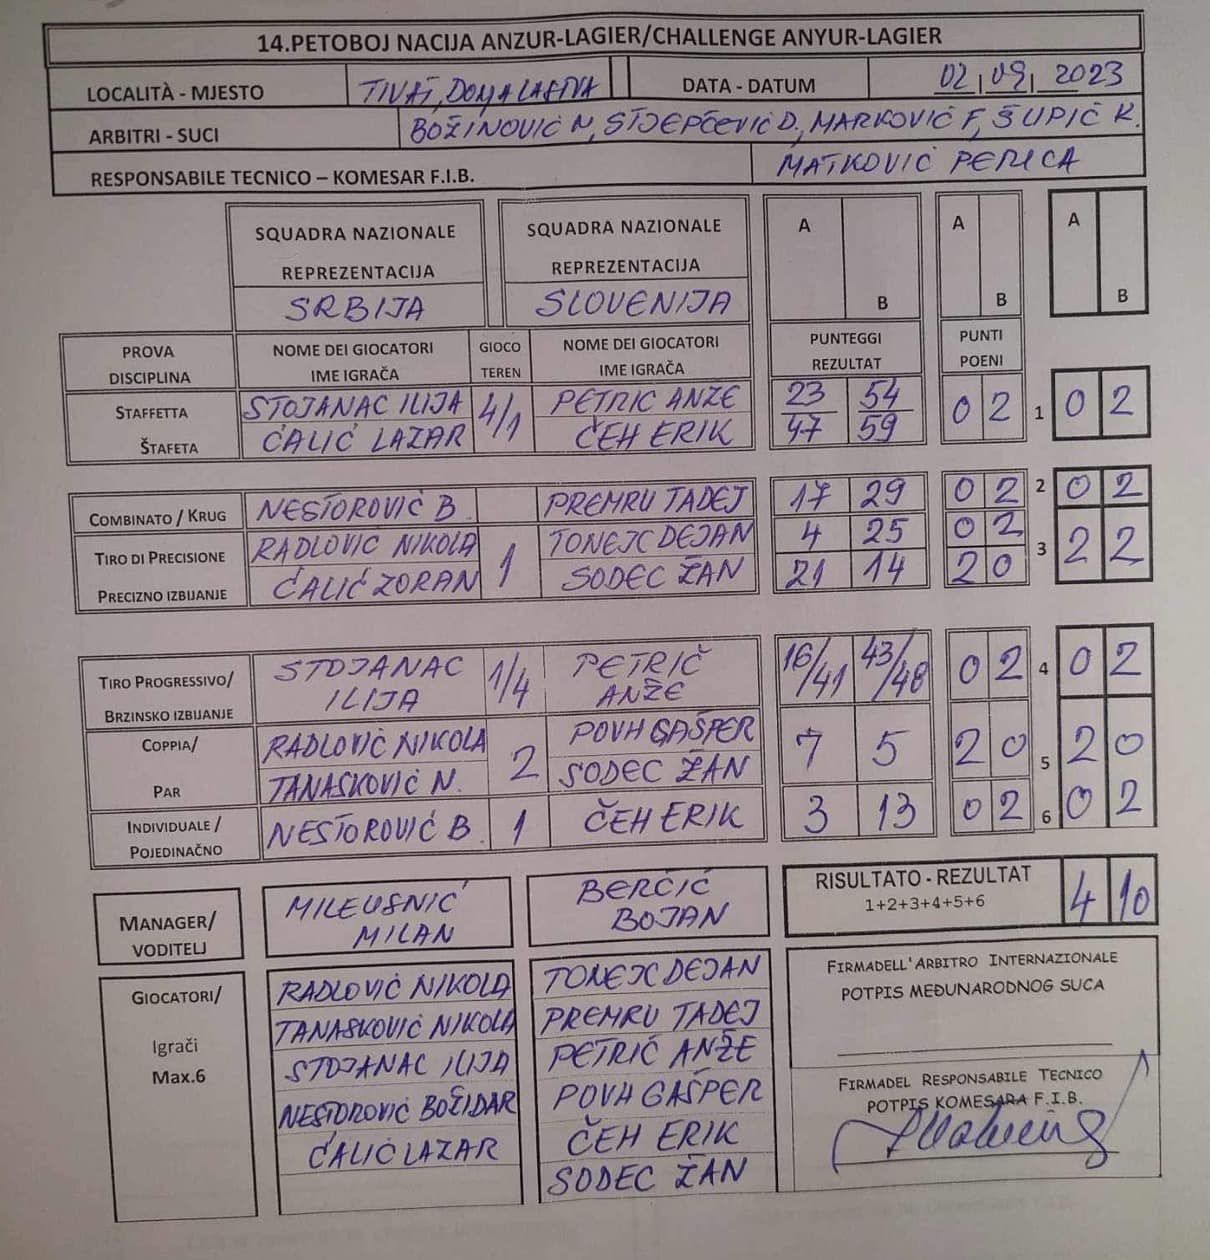 14.PETOBOJ NACIJA ANZUR-LAGIER/CHALLENGE ANYUR-LAGIER
LOCALITÀ - MJESTO TIVAT, DONJA LASTVA DATA - DATUM 02 | 09 | 2023
ARBITRI - SUCI BOŽINOVIĆ N, STJEPČEVIĆ D., MARKOVIĆ F, ŠUPIĆ K.
RESPONSABILE TECNICO – KOMESAR F.I.B. MATKOVIĆ PERICA
SQUADRA NAZIONALE SQUADRA NAZIONALE A A A
REPREZENTACIJA REPREZENTACIJA
SRBIJA SLOVENIJA B B B
PROVA NOME DEI GIOCATORI GIOCO NOME DEI GIOCATORI PUNTEGGI PUNTI
DISCIPLINA IME IGRAČA TEREN IME IGRAČA REZULTAT POENI
STAFFETTA STOJANAC ILIJA 4/1 PETRIC ANŽE 23 54 0 2 1 0 2
ŠTAFETA ĆALIĆ LAZAR ČEH ERIK 47 59
COMBINATO / KRUG NESTOROVIĆ B. PREMRU TADEJ 17 29 0 2 2 0 2
TIRO DI PRECISIONE RADLOVIC NIKOLA 1 TONEJC DEJAN 4 25 0 2 3 2 2
PRECIZNO IZBIJANJE ĆALIĆ ZORAN SODEC ŽAN 21 14 2 0
TIRO PROGRESSIVO/ STOJANAC 1/4 PETRIČ 16/41 43/48 0 2 4 0 2
BRZINSKO IZBIJANJE ILIJA ANŽE
COPPIA/ RADLOVIĆ NIKOLA 2 POVH GAŠPER 7 5 2 0 5 2 0
PAR TANASKOVIĆ N. SODEC ŽAN
INDIVIDUALE / NESTOROVIĆ B. 1 ČEH ERIK 3 13 0 2 6 0 2
POJEDINAČNO
MANAGER/ MILEUSNIĆ BERČIČ RISULTATO - REZULTAT 4 10
VODITELJ MILAN BOJAN 1+2+3+4+5+6
GIOCATORI/ RADLOVIĆ NIKOLA TONEJC DEJAN FIRMADELL'ARBITRO INTERNAZIONALE
TANASKOVIĆ NIKOLA PREMRU TADEJ POTPIS MEĐUNARODNOG SUCA
Igrači STOJANAC ILIJA PETRIČ ANŽE
Max.6 NESTOROVIĆ BOŽIDAR POVH GAŠPER FIRMADEL RESPONSABILE TECNICO
ĆALIĆ LAZAR ČEH ERIK POTPIS KOMESARA F.I.B.
SODEC ŽAN